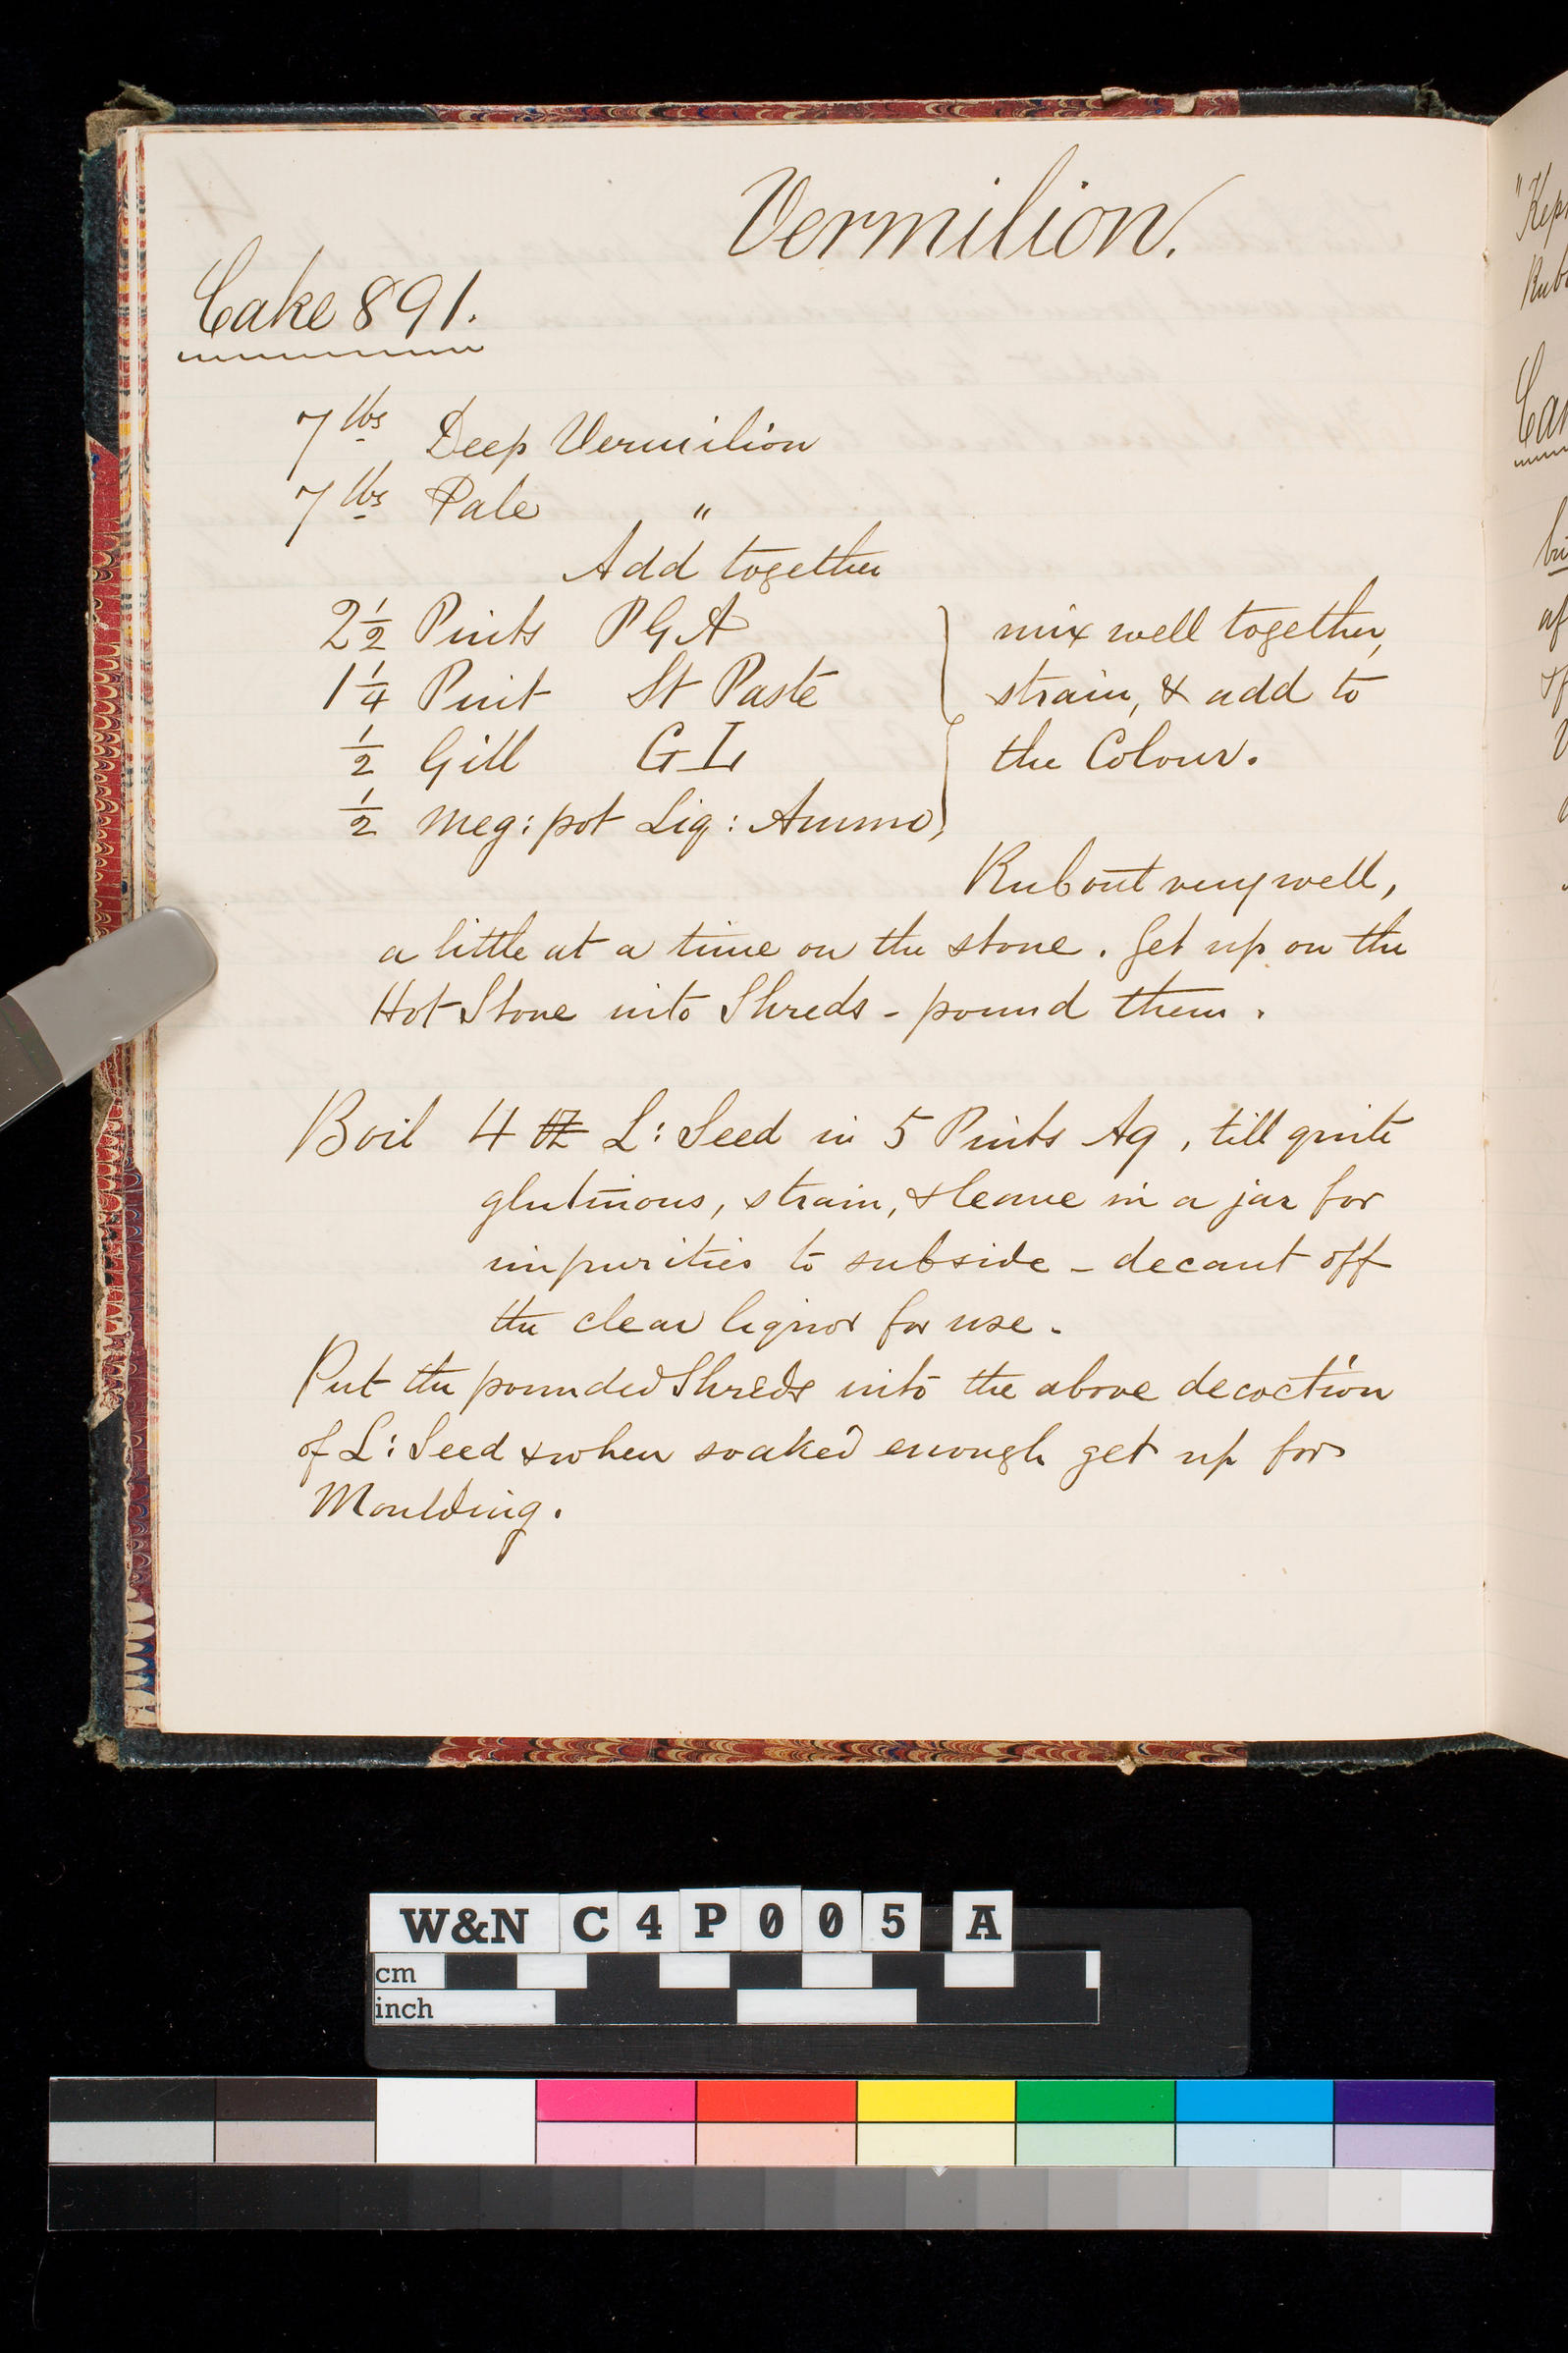 Vermilion.
Cake 891.
7 lbs Deep Vermilion
7 lbs Pale "
Add together
2 1/2 Pints P G A } mix well together,
1 1/4 Pint St Paste strain, & add to
1/2 Gill G L the Colour.
1/2 meg: pot Liq: Ammo
Rub out very well,
a little at a time on the stone. Get up on the
Hot Stone into Shreds - pound them.
Boil 4 oz L: Seed in 5 Pints Aq, till quite
glutinous, strain, & leave in a jar for
impurities to subside - decant off
the clear liquor for use.
Put the pounded Shreds into the above decoction
of L: Seed & when soaked enough get up for
Moulding.
"Kep
Rub
Ca
bri
af
of
W&N C4P005 A
cm
inch